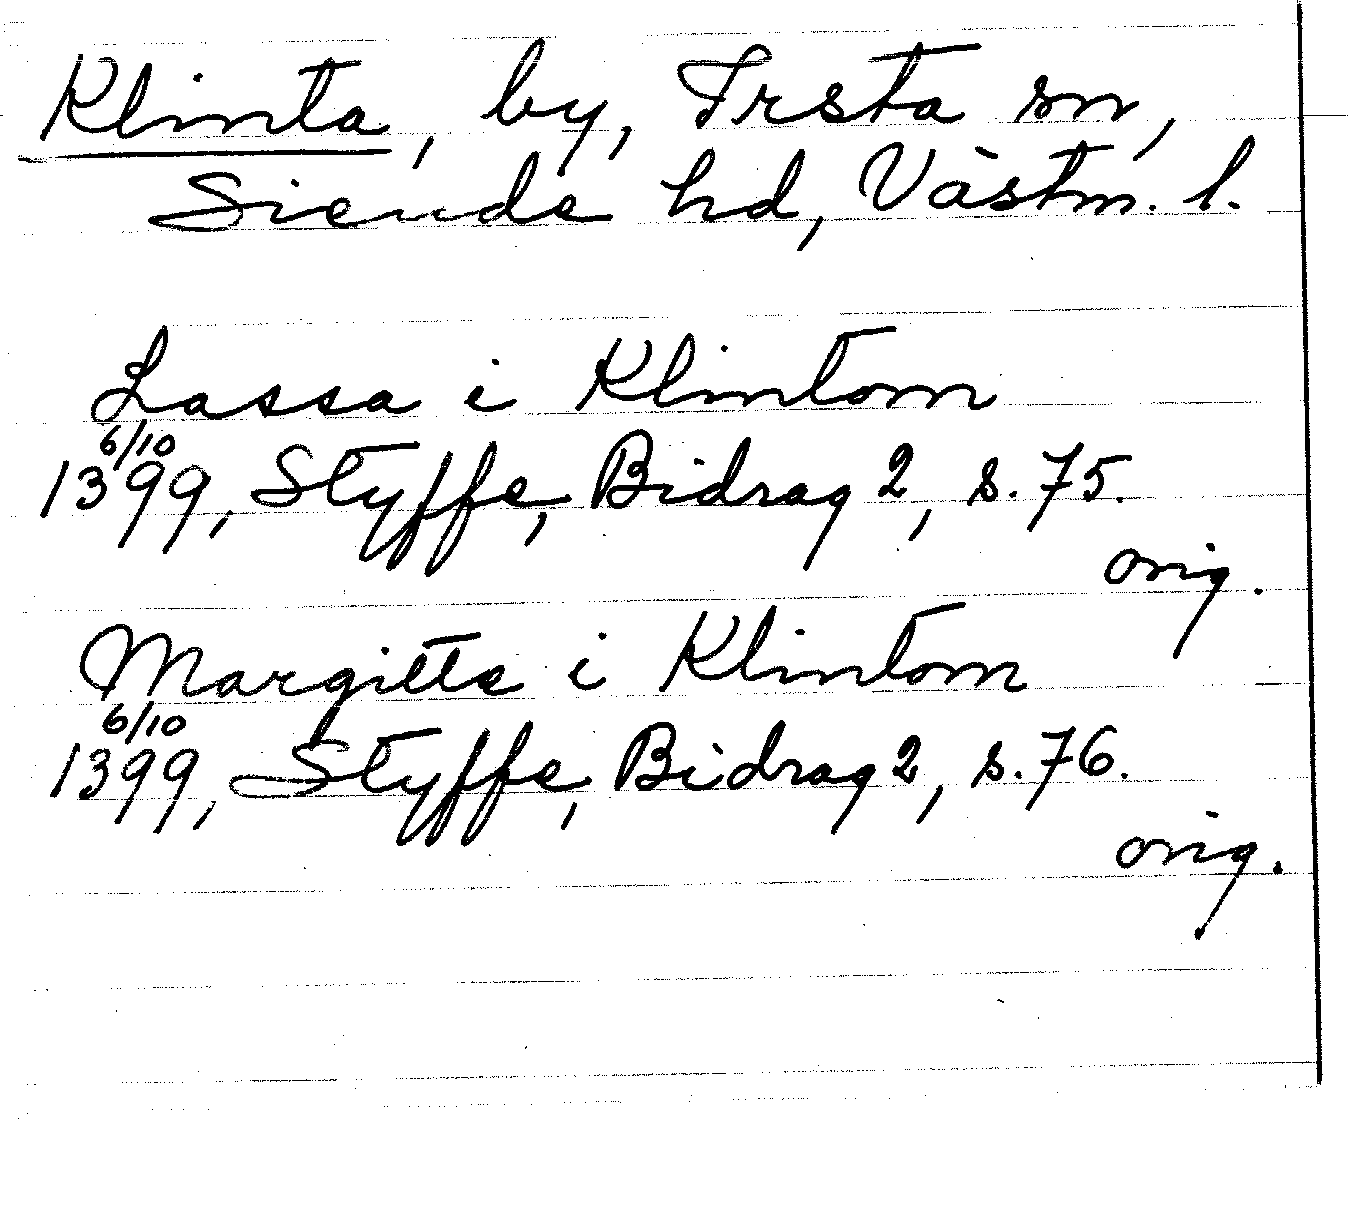 Klinta, by, Irsta sn,
Siende hd, Västm. l.
Lassa i Klintom
6/10
1399, Styffe, Bidrag 2, s. 75.
orig.
Margitte i Klintom
6/10
1399, Styffe, Bidrag 2, s. 76.
orig.